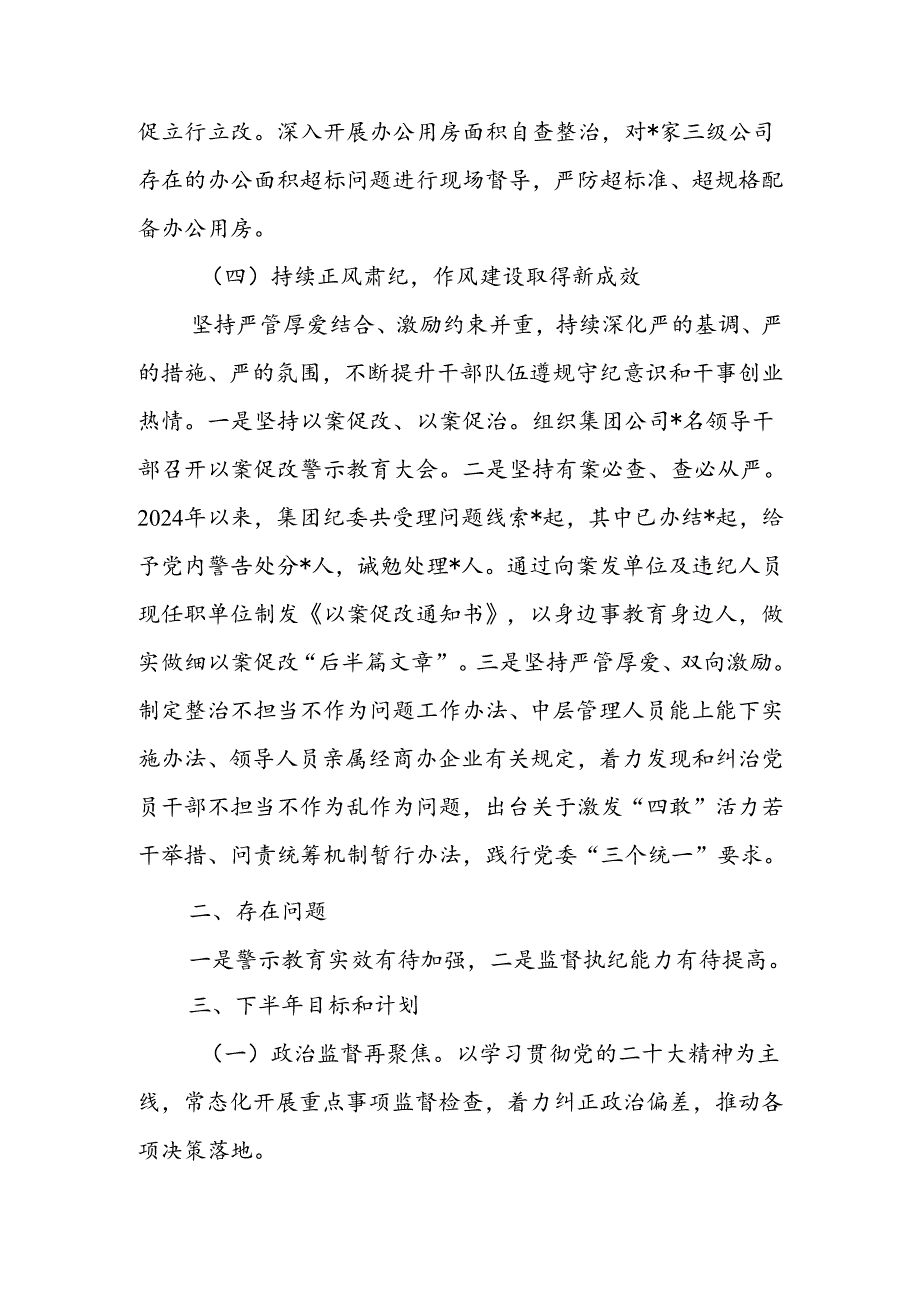 促立行立改。深入开展办公用房面积自查整治，对*家三级公司
存在的办公面积超标问题进行现场督导，严防超标准、超规格配
备办公用房。
（四）持续正风肃纪，作风建设取得新成效
坚持严管厚爱结合、激励约束并重，持续深化严的基调、严
的措施、严的氛围，不断提升干部队伍遵规守纪意识和干事创业
热情。一是坚持以案促改、以案促治。组织集团公司*名领导干
部召开以案促改警示教育大会。二是坚持有案必查、查必从严。
2024年以来，集团纪委共受理问题线索*起，其中已办结*起，给
予党内警告处分*人，诫勉处理*人。通过向案发单位及违纪人员
现任职单位制发《以案促改通知书》，以身边事教育身边人，做
实做细以案促改“后半篇文章”。三是坚持严管厚爱、双向激励。
制定整治不担当不作为问题工作办法、中层管理人员能上能下实
施办法、领导人员亲属经商办企业有关规定，着力发现和纠治党
员干部不担当不作为乱作为问题，出台关于激发“四敢”活力若
干举措、问责统筹机制暂行办法，践行党委“三个统一”要求。
二、存在问题
一是警示教育实效有待加强，二是监督执纪能力有待提高。
三、下半年目标和计划
（一）政治监督再聚焦。以学习贯彻党的二十大精神为主
线，常态化开展重点事项监督检查，着力纠正政治偏差，推动各
项决策落地。